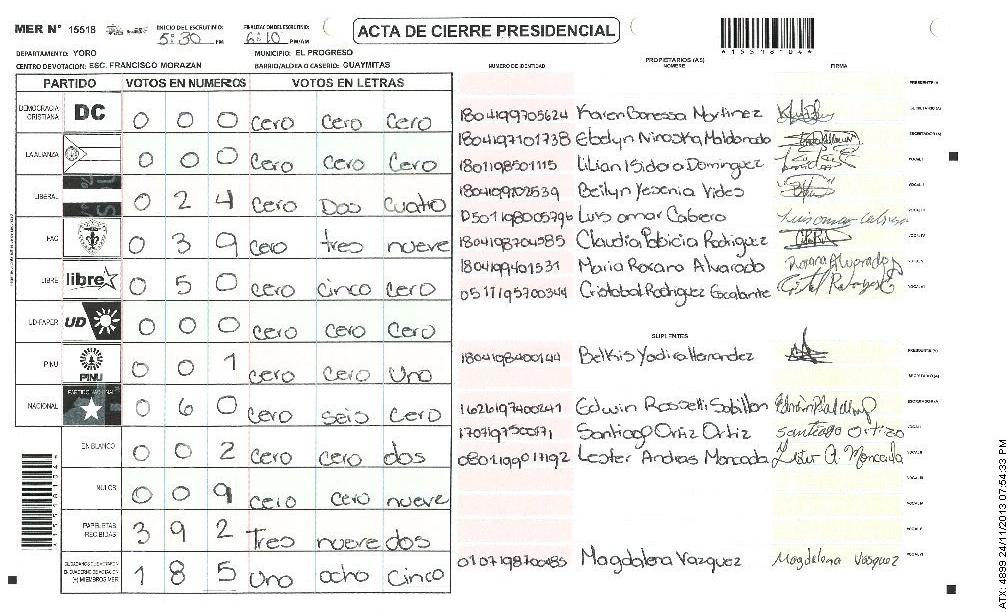 MER N° 15518 INICIO DEL ESCRUTINIO: 5:30 PM FINALIZACION ESCRUTINIO: 6:10 PM/AM ACTA DE CIERRE PRESIDENCIAL
DEPARTAMENTO: YORO MUNICIPIO: EL PROGRESO
CENTRO DE VOTACION: ESC. FRANCISCO MORAZAN BARRIO/ALDEA O CASERIO: GUAYMITAS
PROPIETARIOS (AS)
NUMERO DE IDENTIDAD NOMBRE FIRMA
PARTIDO VOTOS EN NUMEROS VOTOS EN LETRAS
DEMOCRACIA CRISTIANA DC 0 0 0 cero cero cero
LA ALIANZA 0 0 0 cero cero cero
LIBERAL 0 2 4 cero Dos cuatro
PAC 0 3 9 cero tres nueve
LIBRE libre 0 5 0 cero cinco cero
UD-FAPER UD 0 0 0 cero cero cero
PINU PINU 0 0 1 cero cero uno
NACIONAL PARTIDO NACIONAL 0 6 0 cero seis cero
EN BLANCO 0 0 2 cero cero dos
NULOS 0 0 9 cero cero nueve
PAPELETAS RECIBIDAS 3 9 2 Tres nueve dos
1 8 5 uno ocho cinco
PRESIDENTE (A)
1804199705624 Karen Vanessa Martinez SECRETARIO (A)
1804197101738 Ebelyn Ninoska Maldonado ESCRUTADOR (A)
1801198501115 Lilian Isidora Dominguez VOCAL I
1804199702539 Beilyn Yesenia Vides VOCAL II
0501198005796 Luis omar Cabrero Luis omar VOCAL III
1804198704585 Claudia Patricia Rodriguez VOCAL IV
1804199401531 Maria Roxana Alvarado Roxana Alvarado VOCAL V
0511195700344 Cristobal Rodriguez Escalante VOCAL VI
SUPLENTES
1804198400144 Belkis Yadira Hernandez PRESIDENTE (A)
SECRETARIO (A)
1626197400241 Edwin Rosselli Sabillon ESCRUTADOR (A)
Santiago Ortiz Ortiz santiago Ortiz VOCAL I
0801199017192 Lester Andras Moncada Lester A. Moncada VOCAL II
VOCAL III
VOCAL IV
VOCAL V
0107198700485 Magdalena Vazquez Magdalena Vasquez VOCAL VI
ATX: 4899 24/11/2013 07:54:33 PM